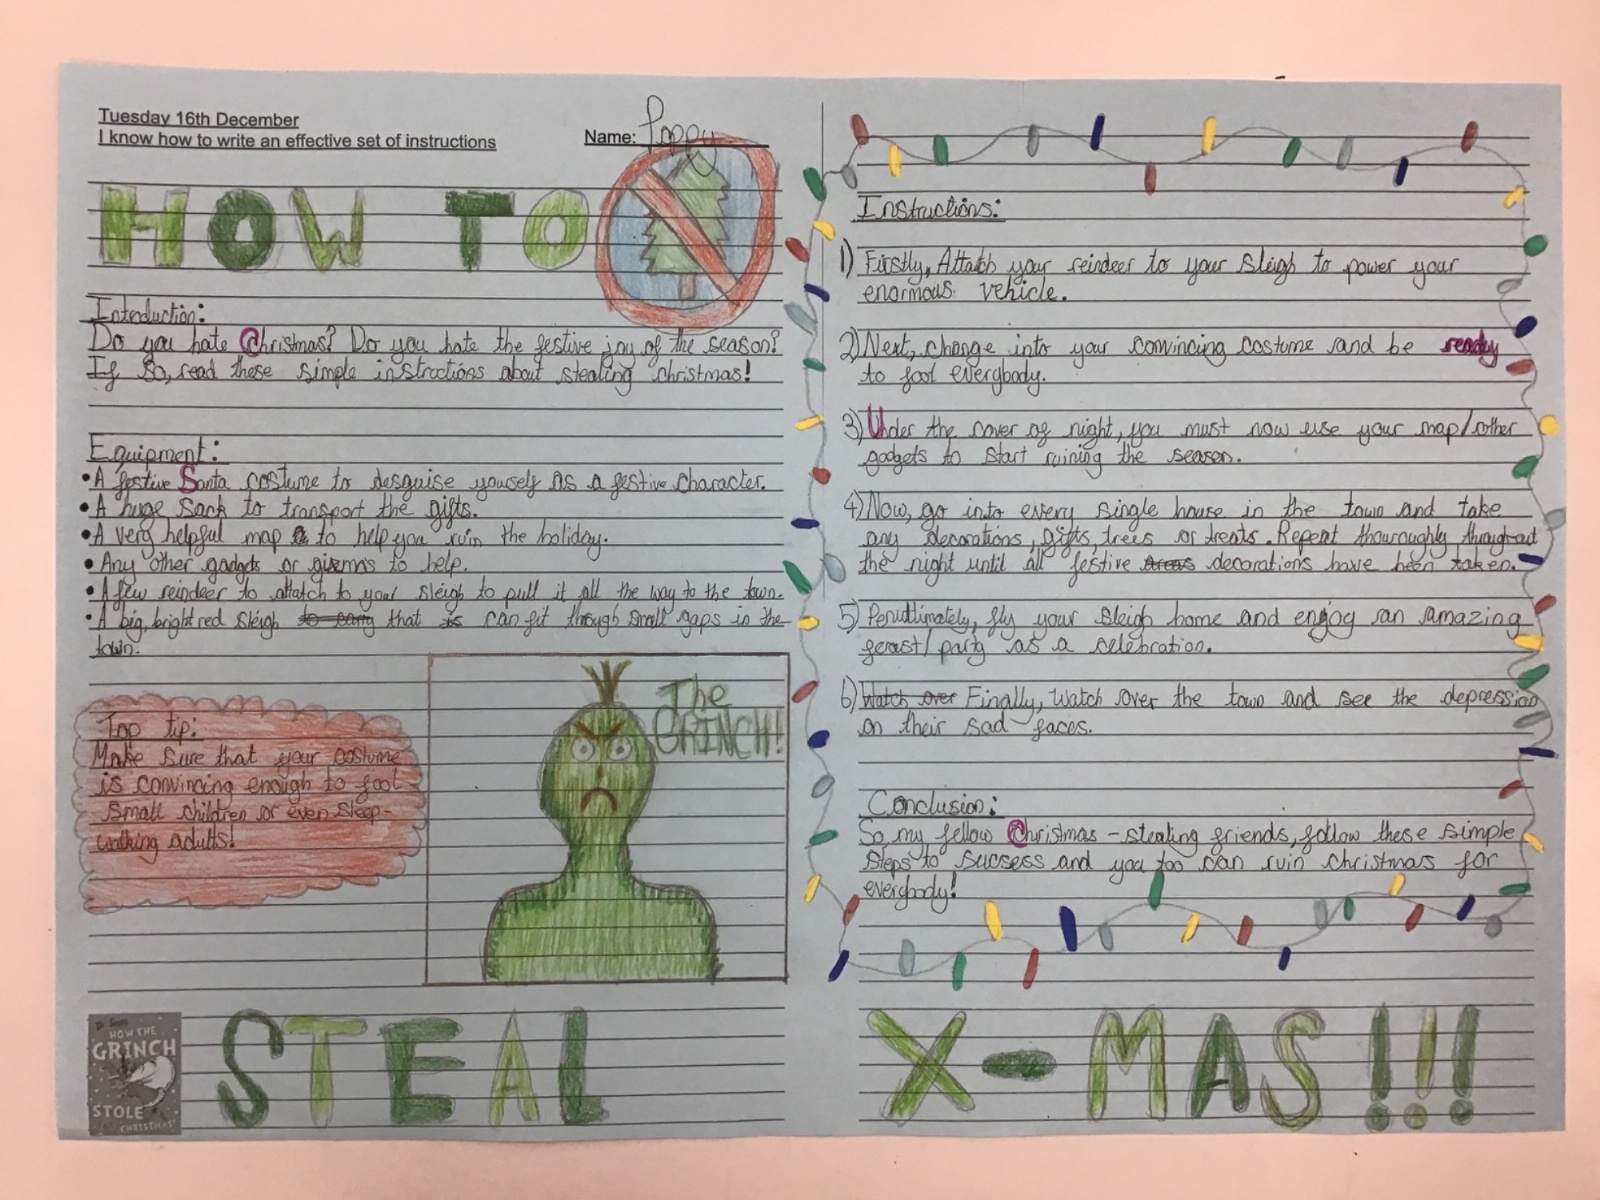 Tuesday 16th December
I know how to write an effective set of instructions
Name: Poppy
HOW TO
Introduction:
Do you hate Christmas? Do you hate the festive joy of the season?
If so, read these simple instructions about stealing christmas!
Equipment:
• A festive Santa costume to desguise yourself as a festive character.
• A huge sack to transport the gifts.
• A very helpful map to help you ruin the holiday.
• Any other gadgets or gizmos to help.
• A few reindeer to attatch to your sleigh to pull it all the way to the town.
• A big, bright red sleigh to carry that is can fit through small gaps in the
town.
Top tip:
Make sure that your costume
is convincing enough to fool
small children or even sleep-
walking adults!
The
GRINCH!
Dr. Seuss
HOW THE
GRINCH
STOLE
CHRISTMAS!
STEAL
Instructions:
1) Firstly, Attatch your reindeer to your sleigh to power your
enormous vehicle.
2) Next, change into your convincing costume and be ready
to fool everybody.
3) Under the cover of night, you must now use your map/other
gadgets to start ruining the season.
4) Now, go into every single house in the town and take
any decorations, gifts, trees or treats. Repeat thouroughly throughout
the night until all festive decorations have been taken.
5) Penultimately, fly your sleigh home and enjoy an amazing
feast/party as a celebration.
6) Watch over Finally, watch over the town and see the depression
on their sad faces.
Conclusion:
So, my fellow Christmas-stealing friends, follow these simple
steps to sucsess and you too can ruin christmas for
everybody!
X-MAS!!!